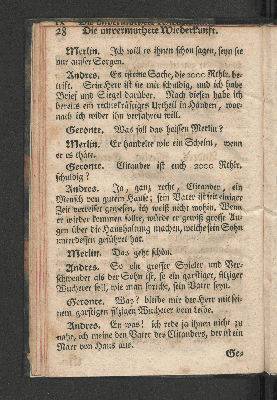 28 Die unvermuthete Wiederkunft.
Merlin. Ich soll es ihnen schon sagen, seyn sie
nur ausser Sorgen.
Andres. Es ist eine Sache, die 2000 Rthlr. be-
trift. Sein Herr ist sie mir schuldig, und ich habe
Brief und Siegel darüber. Nach diesen habe ich
bereits ein rechtskräftiges Urtheil in Händen, wor-
nach ich wider ihn verfahren will.
Geronte. Was soll das heissen Merlin?
Merlin. Er handelte wie ein Schelm, wenn
er es thäte.
Geronte. Clitander ist euch 2000 Rthlr.
schuldig?
Andres. Ja, ganz recht, Clitander, ein
Mensch von gutem Hause; sein Vater ist seit einiger
Zeit verreiset gewesen, ich weiß nicht wohin. Wenn
er wieder kommen sollte, würde er gewiß grosse Au-
gen über die Haushaltung machen, welche sein Sohn
unterdessen geführet hat.
Merlin. Das geht schön.
Andres. So ein grosser Spieler und Ver-
schwender als der Sohn ist, so ein garstiger, filziger
Wucherer soll, wie man spricht, sein Vater seyn.
Geronte. Was? bleibe mir der Herr mit sei-
nem garstigen filzigen Wucherer vom Leibe.
Andres. Ey was! ich rede ja ihnen nicht zu
nahe, ich meine den Vater des Clitanders, der ist ein
Narr von Haus aus.
Ge-